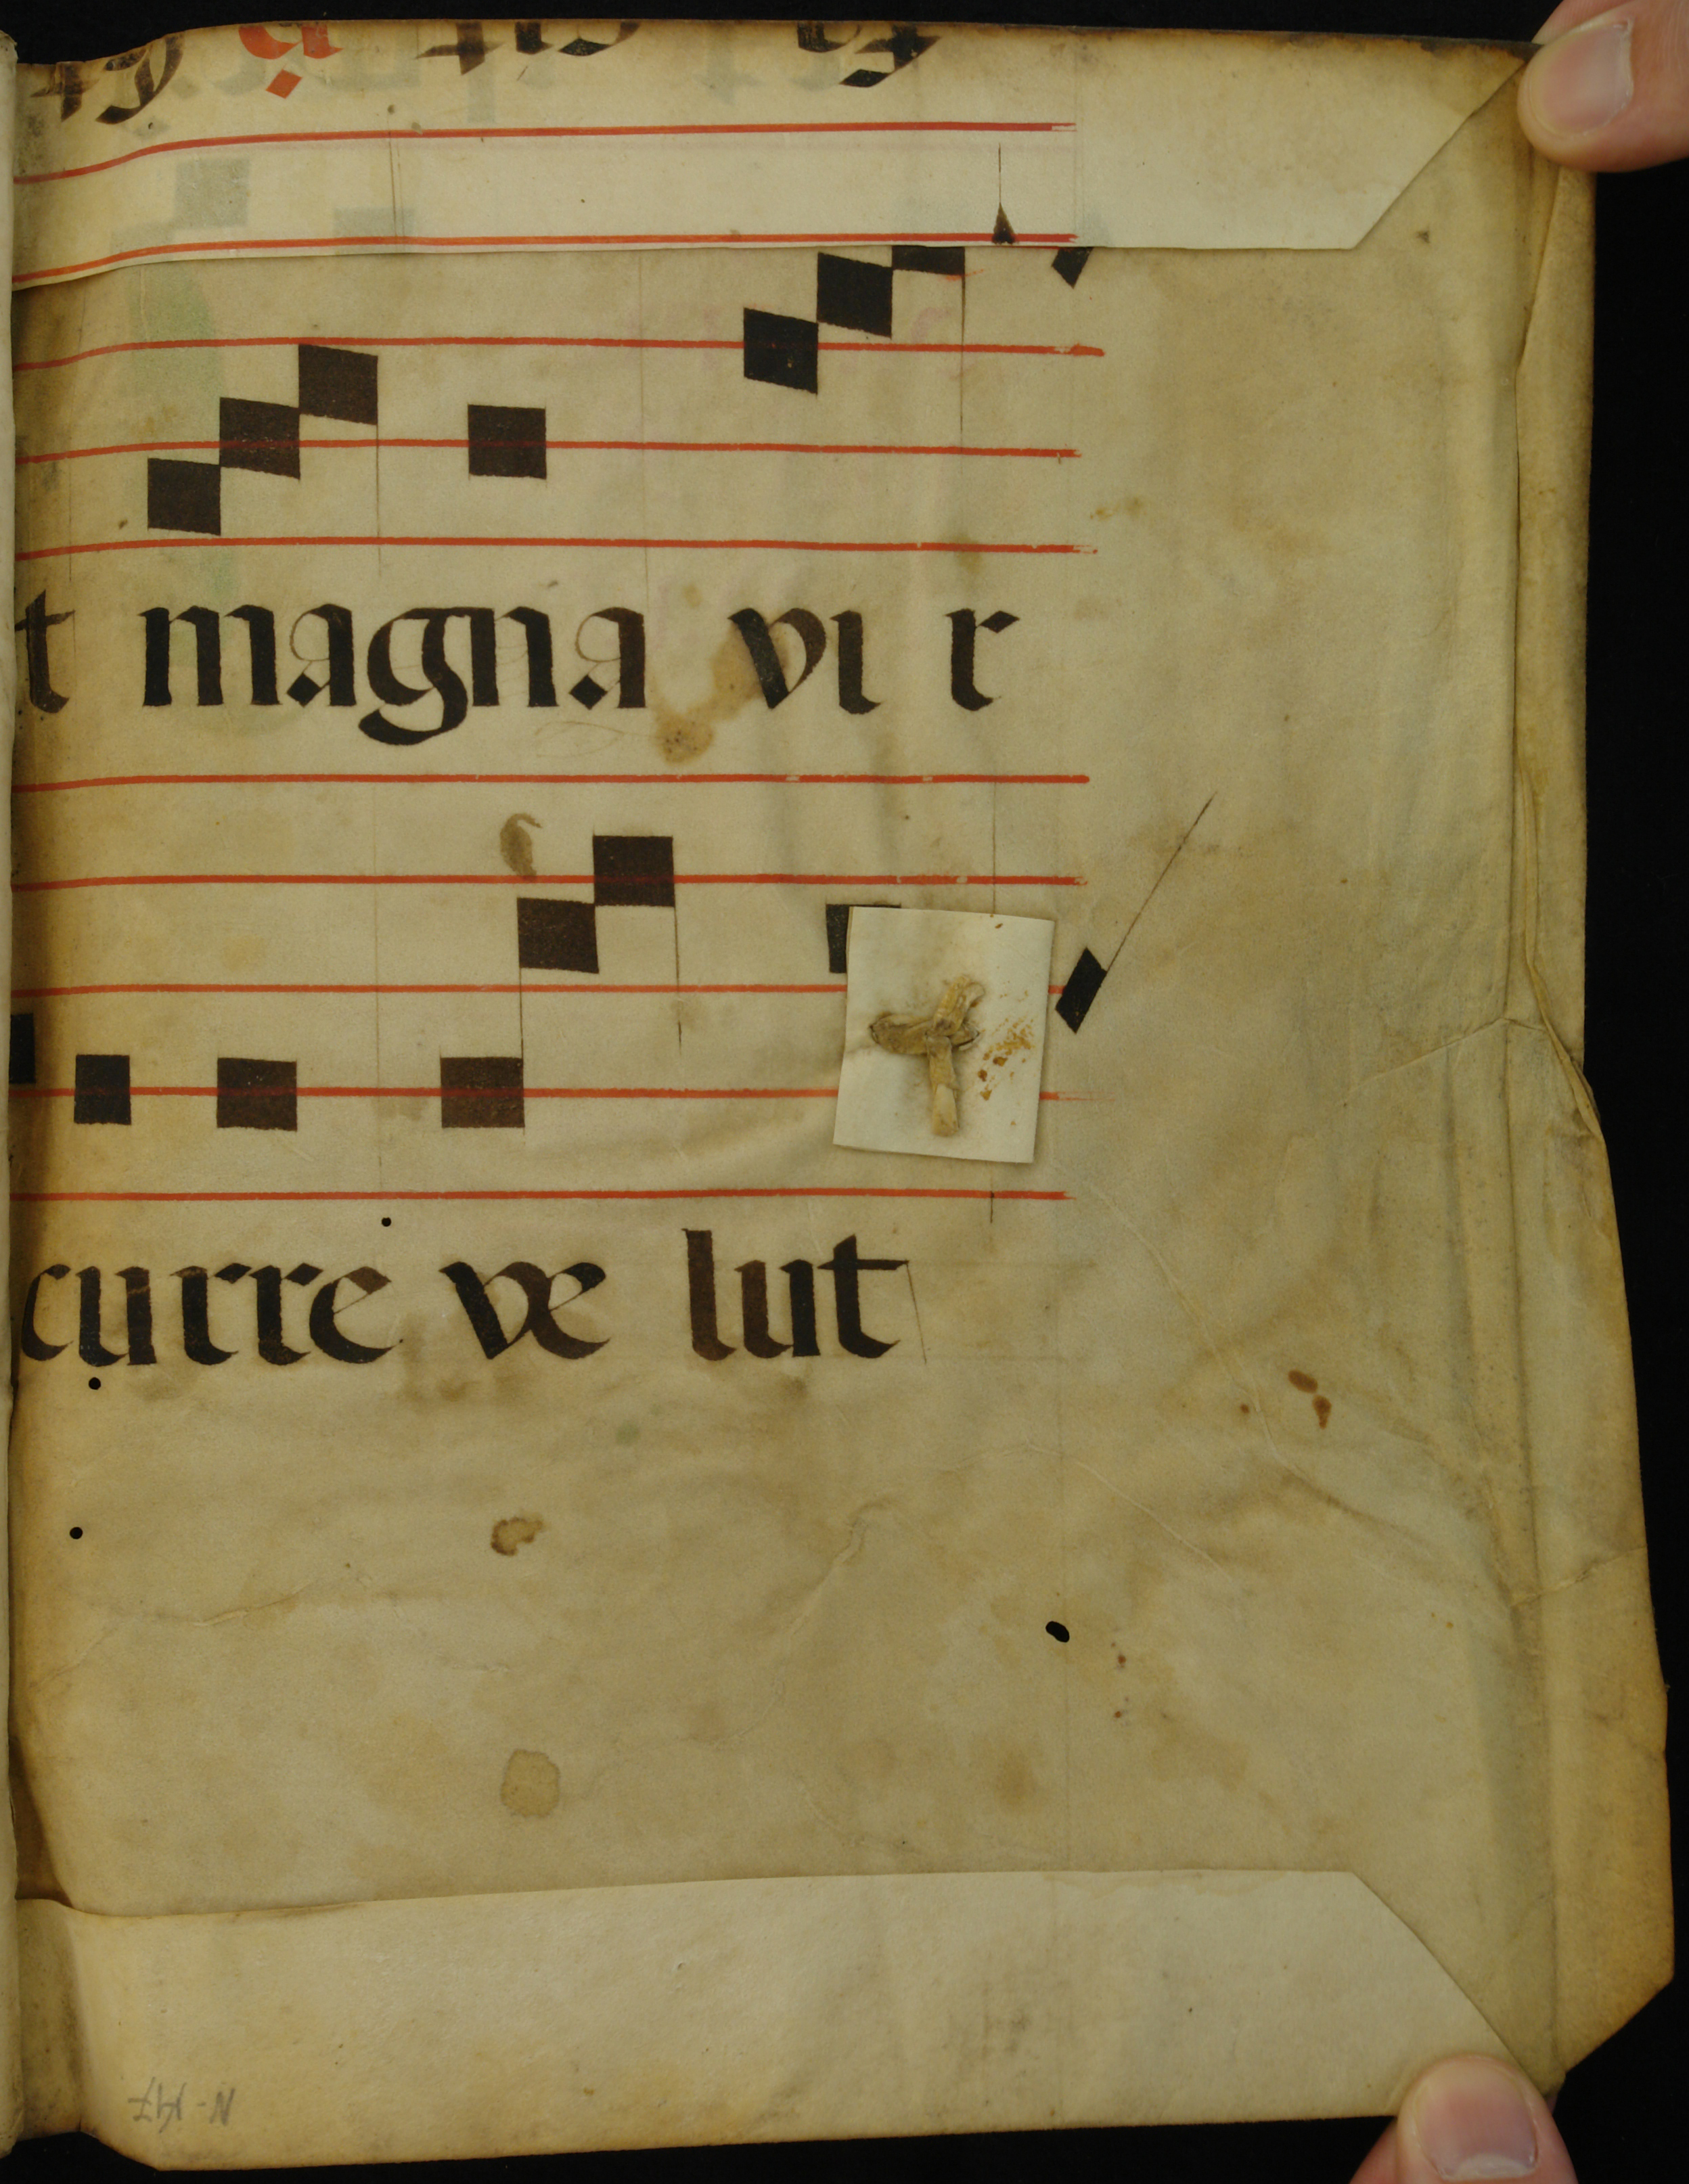 t magna vi r
curre ve lut
N-147